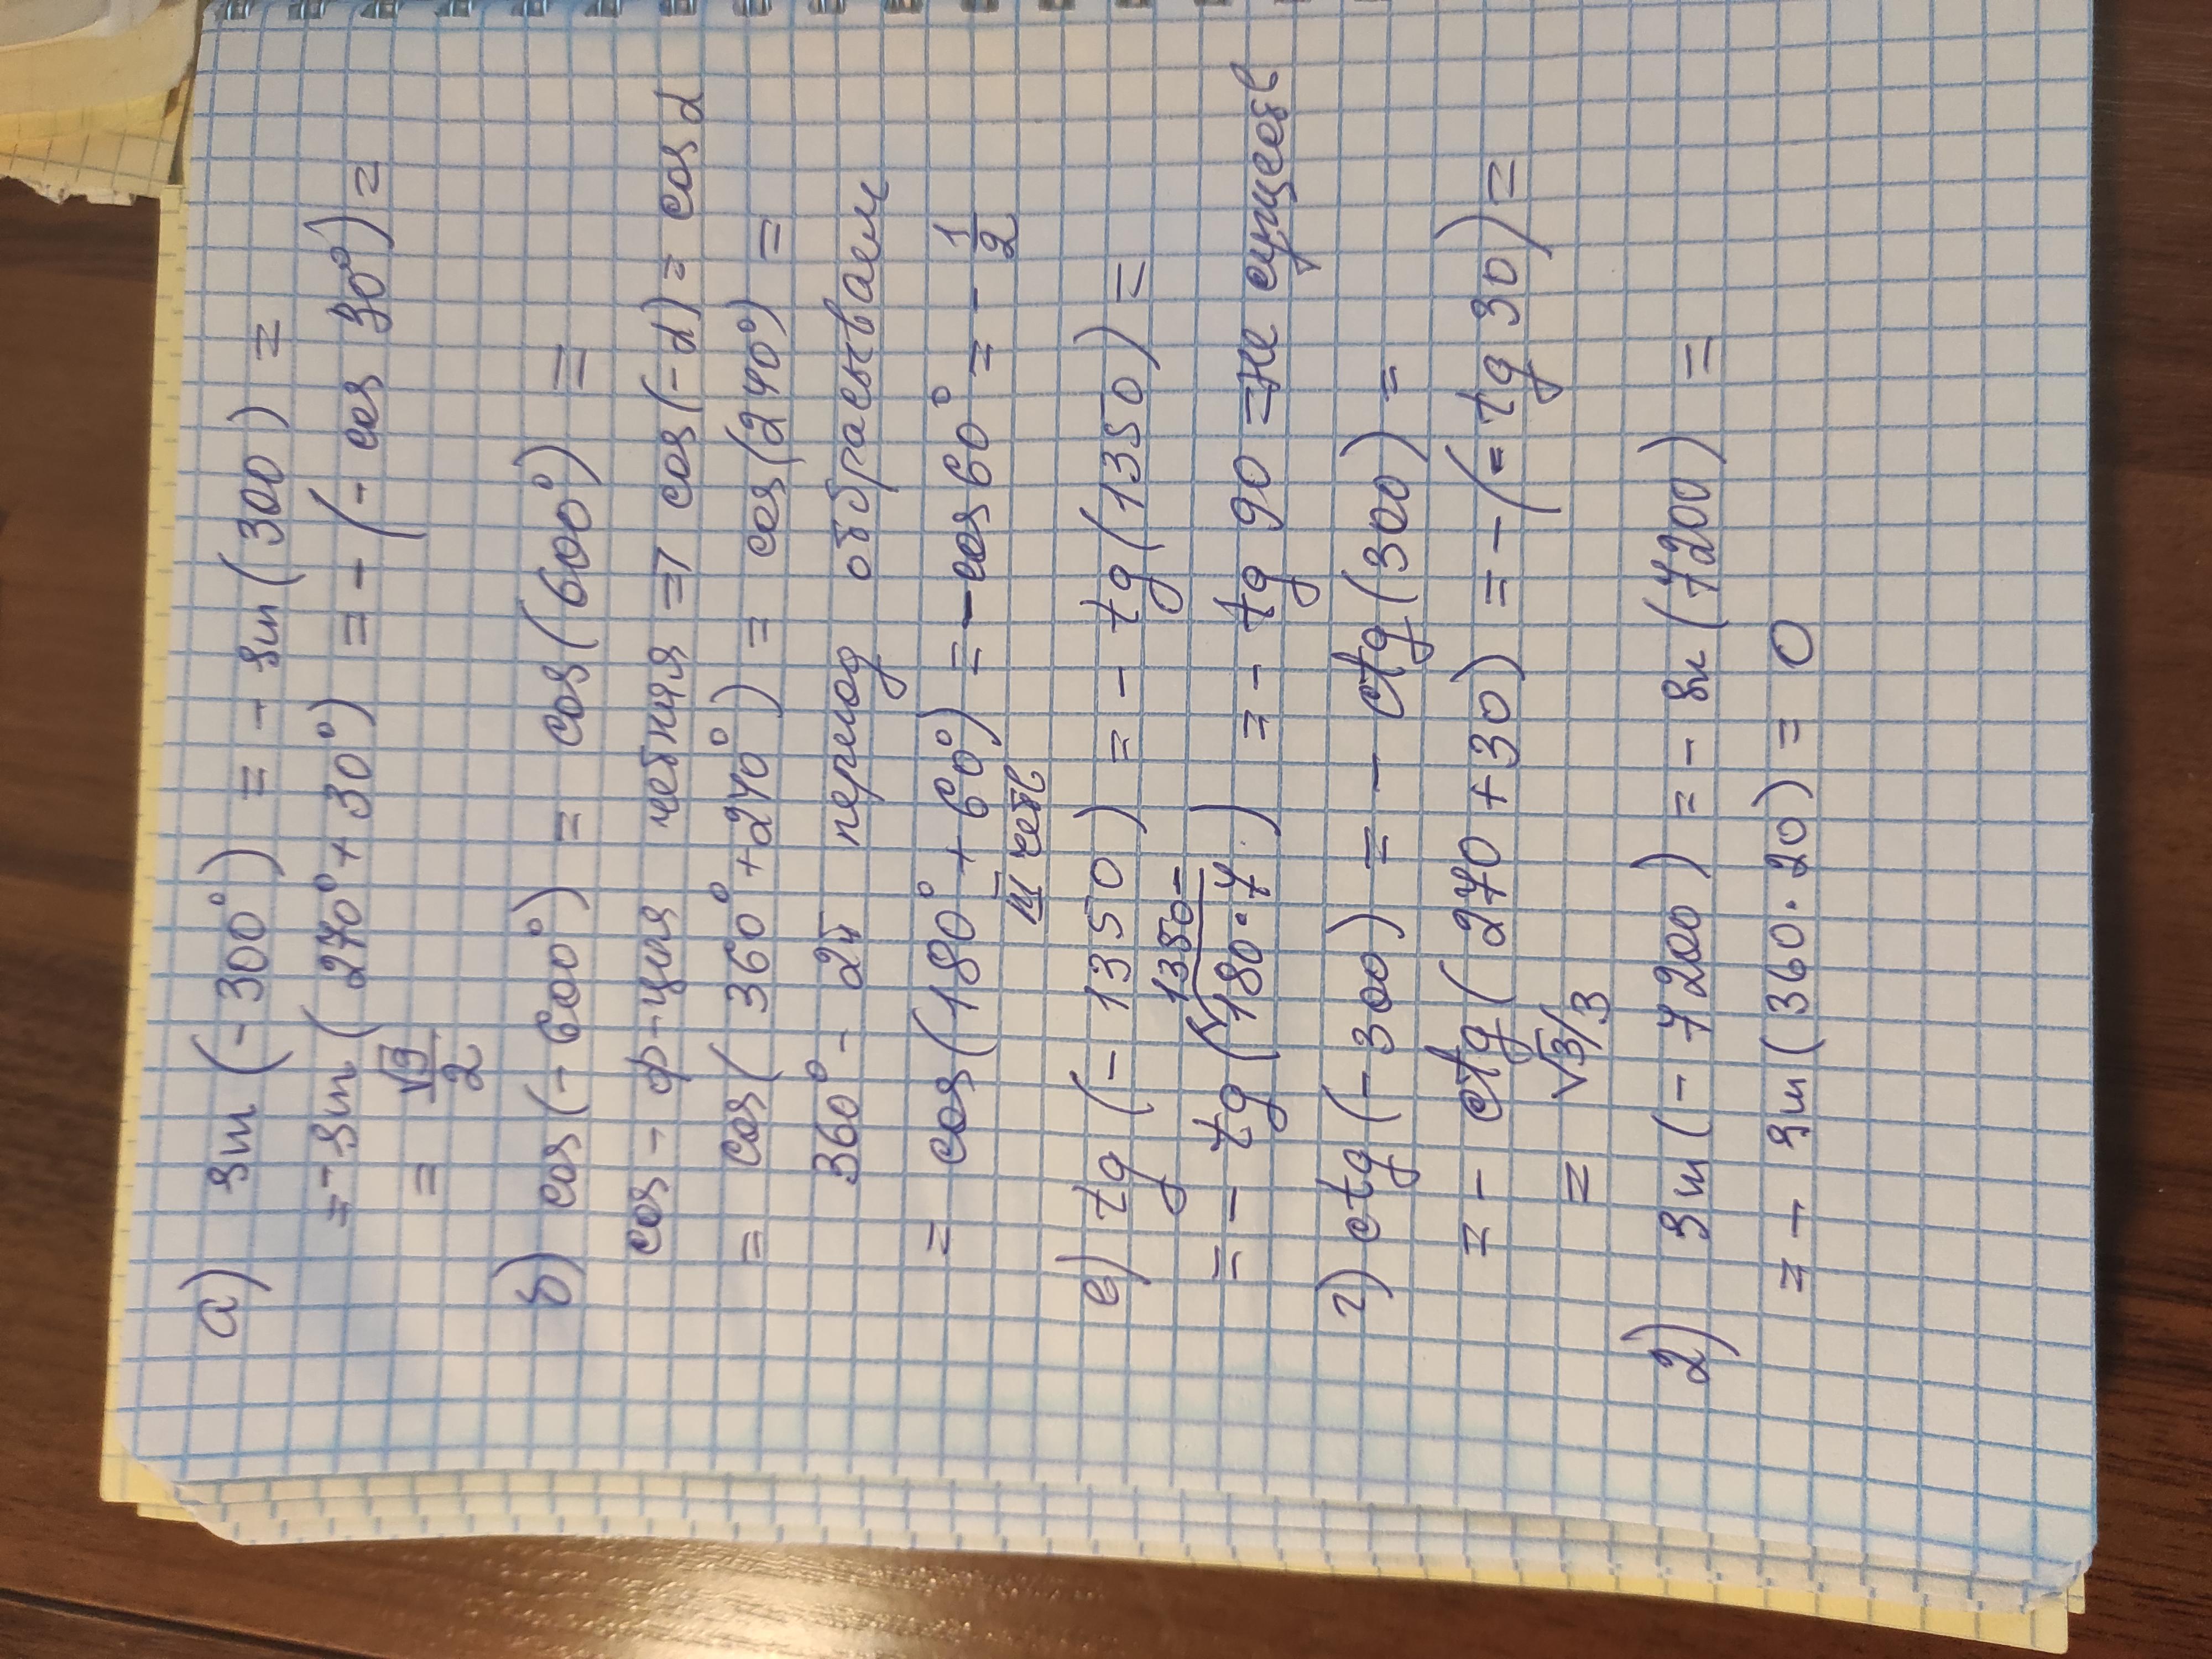 а) sin (-300°) = - sin (300) =
= - sin (270° + 30°) = - (- cos 30°) =
= √3/2
б) cos (-600°) = cos (600°) =
cos - ф-ция четная => cos (-α) = cos α
= cos (360° + 240°) = cos (240°) =
360° - 2π период отбрасываем
= cos (180° + 60°) = - cos 60° = - 1/2
III четв
в) tg (-1350) = - tg (1350) =
1350-
= - tg (180·7 ) = - tg 90 = не существ
г) ctg (-300) = - ctg (300) =
= - ctg (270 + 30) = - (- tg 30) =
= √3/3
2) sin (-7200) = - sin (7200) =
= - sin (360·20) = 0